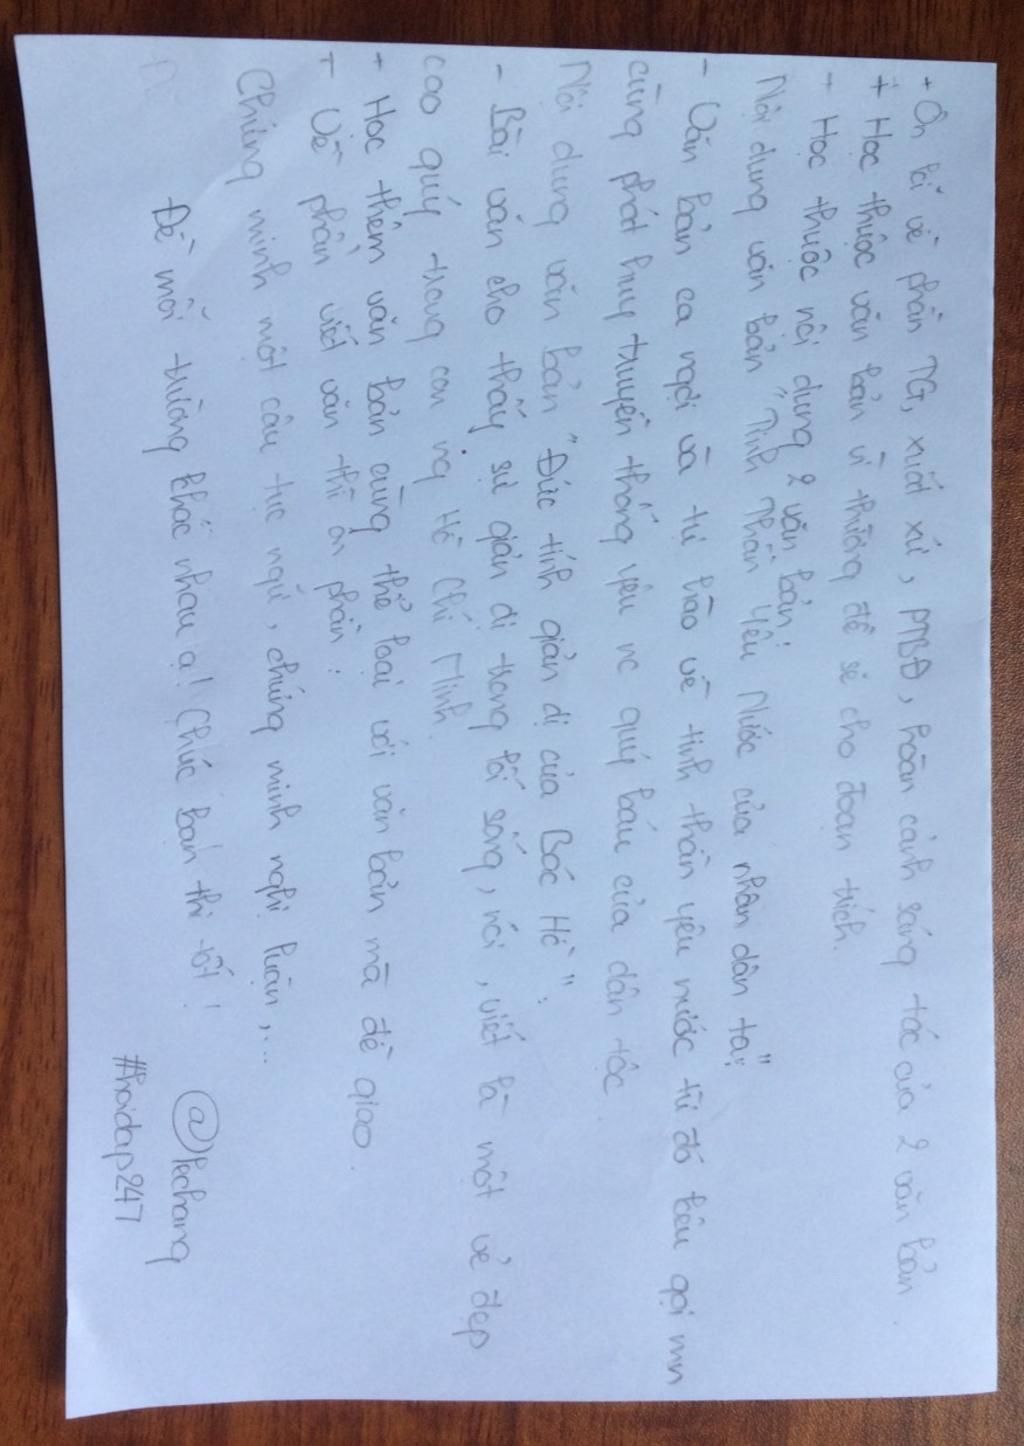 + Ôn lại về phần TG, xuất xứ, PTBĐ, hoàn cảnh sáng tác của 2 văn bản.
+ Học thuộc văn bản vì thường đề sẽ cho đoạn trích.
+ Học thuộc nội dung 2 văn bản:
Nội dung văn bản "Tinh Thần Yêu Nước của nhân dân ta":
- Văn bản ca ngợi và tự hào về tinh thần yêu nước từ đó kêu gọi mn
cùng phát huy truyền thống yêu nc quý báu của dân tộc.
Nội dung văn bản "Đức tính giản dị của Bác Hồ":
- Bài văn cho thấy sự giản dị trong lối sống, nói, viết là một vẻ đẹp
cao quý trong con ng Hồ Chí Minh.
+ Học thêm văn bản cùng thể loại với văn bản mà đề giao.
+ Về phần viết văn thì ôn phần:
Chứng minh một câu tục ngữ, chứng minh nghị luận,...
Đề mỗi trường khác nhau ạ! Chúc bạn thi tốt!
@lechang
#hoidap247